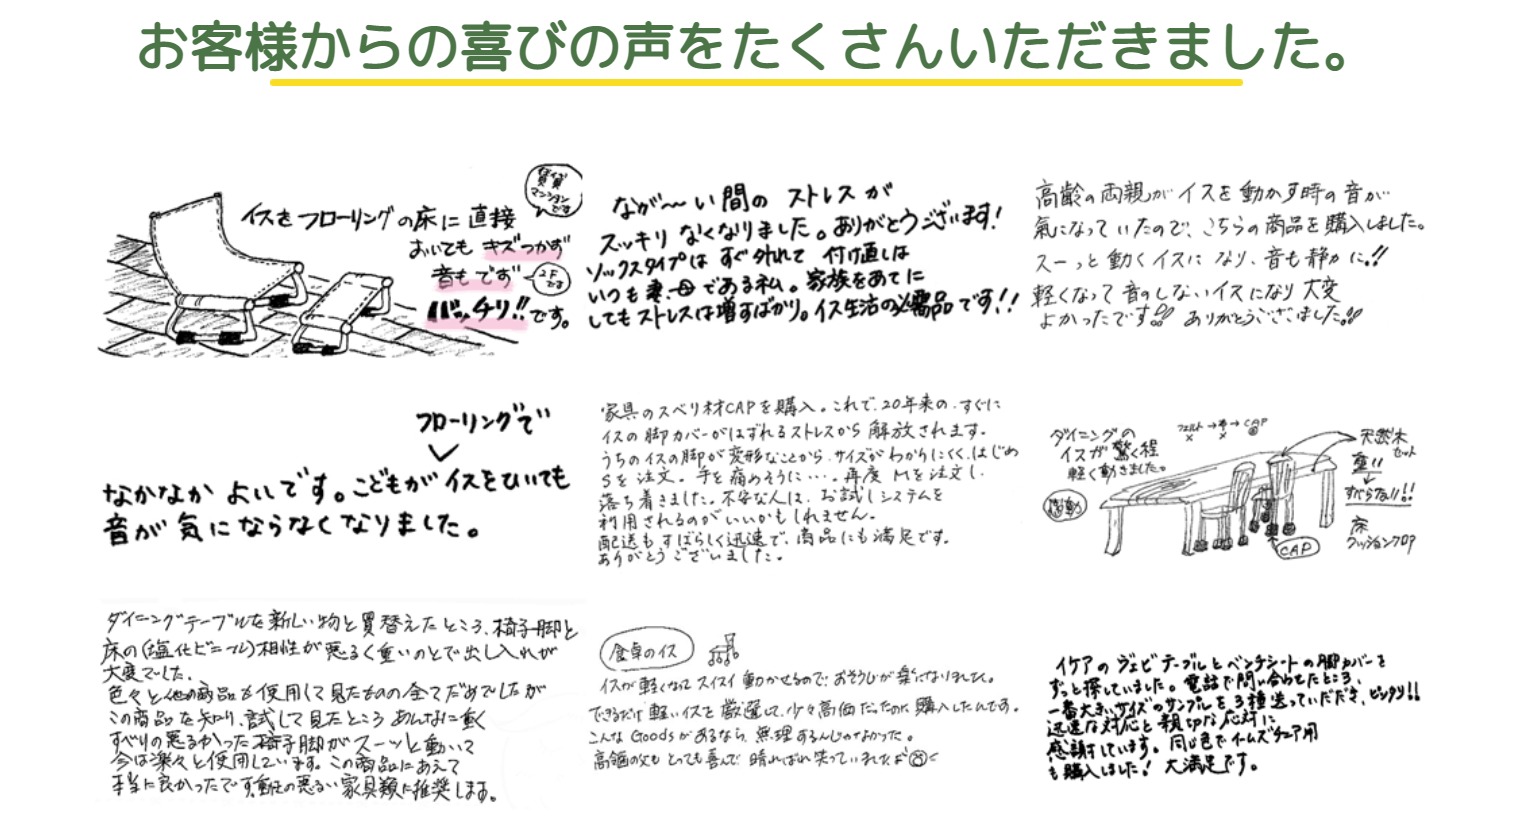 お客様からの喜びの声をたくさんいただきました。
賃貸
マンション
です
イスをフローリングの床に直接
おいてもキズつかず
音もでず
2F
です
バッチリ!!です。
なが〜い間の ストレスが
スッキリ なくなりました。ありがとうございます!
ソックスタイプは すぐ外れて 付け直しは
いつも妻、母である私。家族をあてに
してもストレスは増すばかり。イス生活の必需品です!!
高齢の両親がイスを動かす時の音が
気になっていたので、こちらの商品を購入しました。
スーっと動くイスになり、音も静かに!!
軽くなって音のしないイスになり大変
よかったです!! ありがとうございました!!
フローリングで
なかなか よいです。こどもがイスをひいても
音が気にならなくなりました。
家具のスベリ材CAPを購入。これで、20年来の、すぐに
イスの脚カバーがはずれるストレスから解放されます。
うちのイスの脚が変形なことから、サイズがわかりにくく、はじめ
Sを注文。手を痛めそうに…。再度Mを注文し、
落ち着きました。不安な人は、お試しシステムを
利用されるのがいいかもしれません。
配送もすばらしく迅速で、商品にも満足です。
ありがとうございました。
ダイニングの
イスが驚く程
軽く動きました。
感動
フェルト→ → CAP
× × ◎
天然木
セット
重!!
すべらない!!
床
クッションフロア
CAP
ダイニングテーブルを新しい物と買替えたところ、椅子脚と
床の(塩化ビニール)相性が悪るく重いのとで出し入れが
大変でした。
色々と他の商品も使用して見たものの全てだめでしたが
この商品を知り、試して見たところあんなに動く
すべりの悪るかった椅子脚がスーッと動いて
今は楽々と使用しています。この商品にあえて
本当に良かったです。動の悪るい家具類に推奨します。
食卓のイス
イスが軽くなってスイスイ動かせるので、おそうじが楽になりました。
できるだけ軽いイスを厳選して、少々高価だったのに購入したんです。
こんなGoodsがあるなら、無理するんじゃなかった。
高齢の父もとっても喜んで晴ればれ笑っていれたよ
イケアの ジョビテーブルとベンチシートの脚カバーを
ずっと探していました。電話で問い合わせたところ、
一番大きいサイズのサンプルを3種送っていただき、ピッタリ!!
迅速な対応と親切な応対に
感謝しています。同じ色でイームズチェア用
も購入しました! 大満足です。